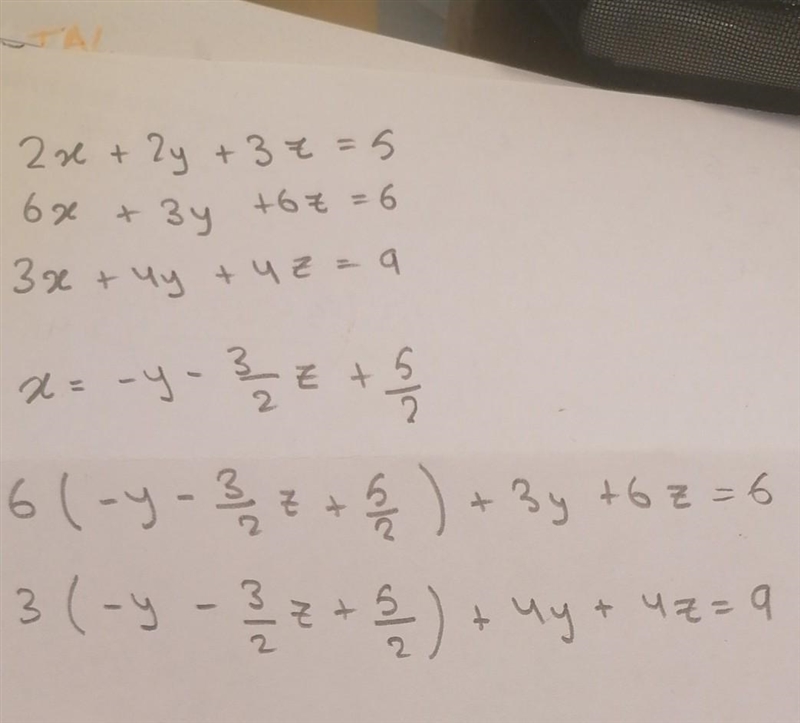 2x + 2y + 3z = 5
6x + 3y + 6z = 6
3x + 4y + 4z = 9
x = -y - 3/2 z + 5/2
6(-y - 3/2 z + 5/2) + 3y + 6z = 6
3(-y - 3/2 z + 5/2) + 4y + 4z = 9